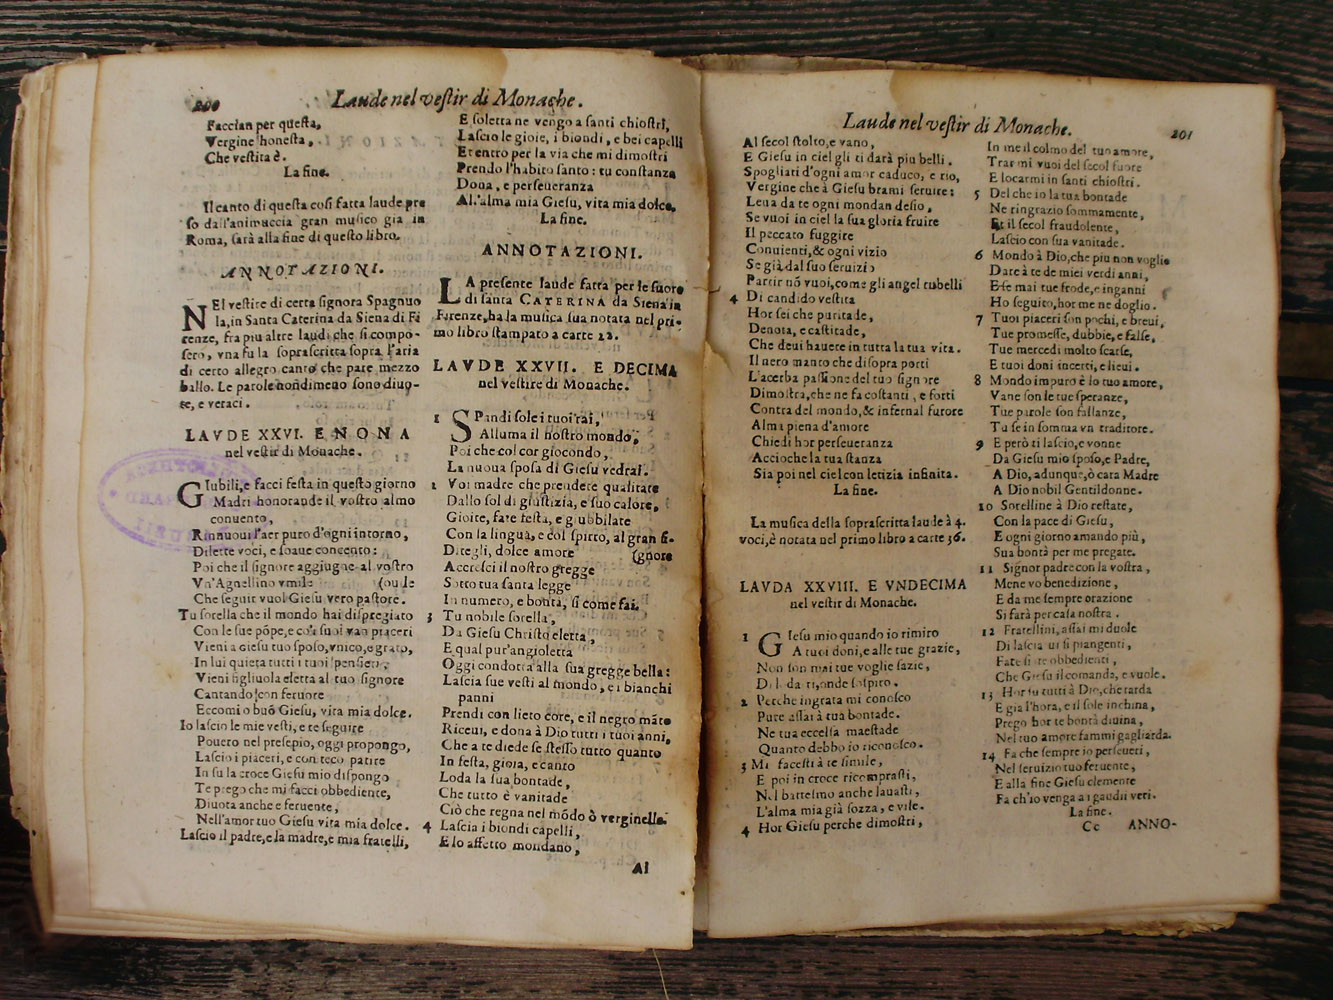 200 Laude nel vestir di Monache.
Faccian per questa,
Vergine honesta,
Che vestita è.
La fine.
Il canto di questa cosi fatta laude pre
so dall'animuccia gran musico gia in
Roma, sarà alla fine di questo libro.
ANNOTAZIONI.
NEl vestire di certa signora Spagnuo
la, in Santa Caterina da Siena di Fi
renze, fra piu altre laudi che si compo-
sero, vna fu la soprascritta sopra l'aria
di certo allegro canto che pare mezzo
ballo. Le parole nondimeno sono diuo-
te, e veraci.
LAVDE XXVI. E NONA
nel vestir di Monache.
GIubili, e facci festa in questo giorno
Madri honorande il vostro almo
conuento,
Rinnuoui l'aer puro d'ogni intorno,
Dilette voci, e soaue concento:
Poi che il signore aggiugne al vostro
Vn'Agnellino vmile (ouile
Che seguir vuol Giesu vero pastore.
Tu sorella che il mondo hai dispregiato
Con le sue pōpe, e co i suoi van piaceri
Vieni a Giesu tuo sposo, vnico, e grato,
In lui quieta tutti i tuoi pensieri,
Vieni figliuola eletta al tuo signore
Cantando con feruore
Eccomi o buō Giesu, vita mia dolce.
Io lascio le mie vesti, e te seguire
Pouero nel presepio, oggi propongo,
Lascio i piaceri, e con teco patire
In su la croce Giesu mio dispongo
Te prego che mi facci obbediente,
Diuota anche e feruente,
Nell'amor tuo Giesu vita mia dolce.
Lascio il padre, e la madre, e mia fratelli,
E soletta ne vengo a santi chiostri,
Lascio le gioie, i biondi, e bei capelli
Et entro per la via che mi dimostri
Prendo l'habito santo: tu constanza
Dona, e perseueranza
All'alma mia Giesu, vita mia dolce.
La fine.
ANNOTAZIONI.
LA presente laude fatta per le suore
di santa CATERINA da Siena in
Firenze, ha la musica sua notata nel pri-
mo libro stampato a carte 22.
LAVDE XXVII. E DECIMA
nel vestire di Monache.
1 SPandi sole i tuoi rai,
Alluma il nostro mondo,
Poi che col cor giocondo,
La nuoua sposa di Giesu vedrai.
2 Voi madre che prendete qualitate
Dallo sol di giustizia, e suo calore,
Gioite, fate festa, e giubbilate
Con la lingua, e col spirto, al gran si-
Ditegli, dolce amore (gnore
Accresci il nostro gregge
Sotto tua santa legge
In numero, e bontà, si come fai.
3 Tu nobile sorella,
Da Giesu Christo eletta,
E qual pur'angioletta
Oggi condotta alla sua gregge bella:
Lascia sue vesti al mondo, e i bianchi
panni
Prendi con lieto core, e il negro māto
Riceui, e dona à Dio tutti i tuoi anni,
Che a te diede se stesso tutto quanto
In festa, gioia, e canto
Loda la sua bontade,
Che tutto è vanitade
Ciò che regna nel mōdo ò verginella.
4 Lascia i biondi capelli,
E lo affetto mondano,
Al
Laude nel vestir di Monache. 201
Al secol stolto, e vano,
E Giesu in ciel gli ti darà piu belli.
Spogliati d'ogni amor caduco, e rio,
Vergine che à Giesu brami seruire:
Leua da te ogni mondan desio,
Se vuoi in ciel la sua gloria fruire
Il peccato fuggire
Conuienti, & ogni vizio
Se già dal suo seruizio
Partir nō vuoi, come gli angel rubelli
4 Di candido vestita
Hor sei che puritade,
Denota, e castitade,
Che deui hauere in tutta la tua vita.
Il nero manto che disopra porti
L'acerba passione del tuo signore
Dimostra, che ne fa costanti, e forti
Contra del mondo, & infernal furore
Alma piena d'amore
Chiedi hor perseueranza
Accioche la tua stanza
Sia poi nel ciel con letizia infinita.
La fine.
La musica della soprascritta laude à 4.
voci, è notata nel primo libro a carte 36.
LAVDA XXVIII. E VNDECIMA
nel vestir di Monache.
1 GIesu mio quando io rimiro
A tuoi doni, e alle tue grazie,
Non son mai tue voglie sazie,
Di lodarti, onde sospiro.
2 Perche ingrata mi conosco
Pure assai à tua bontade.
Ne tua eccelsa maestade
Quanto debbo io riconosco.
3 Mi facesti à te simile,
E poi in croce ricomprasti,
Nel battesmo anche lauasti,
L'alma mia già sozza, e vile.
4 Hor Giesu perche dimostri,
In me il colmo del tuo amore,
Trar mi vuoi del secol fuore
E locarmi in santi chiostri.
5 Del che io la tua bontade
Ne ringrazio sommamente,
Et il secol fraudolente,
Lascio con sua vanitade.
6 Mondo à Dio, che piu non voglio
Dare à te de miei verdi anni,
E se mai tue frode, e inganni
Ho seguito, hor me ne doglio.
7 Tuoi piaceri son pochi, e breui,
Tue promesse, dubbie, e false,
Tue mercedi molto scarse,
E tuoi doni incerti, e lieui.
8 Mondo impuro è lo tuo amore,
Vane son le tue speranze,
Tue parole son fallanze,
Tu se in somma vn traditore.
9 E però ti lascio, e vonne
Da Giesu mio sposo, e Padre,
A Dio, adunque, ò cara Madre
A Dio nobil Gentildonne.
10 Sorelline à Dio restate,
Con la pace di Giesu,
E ogni giorno amando più,
Sua bontà per me pregate.
11 Signor padre con la vostra,
Me ne vo benedizione,
E da me sempre orazione
Si farà per casa nostra.
12 Fratellini, assai mi duole
Di lasciarui si piangenti,
Fate siate obbedienti,
Che Giesu il comanda, e vuole.
13 Hor su tutti à Dio, che tarda
E gia l'hora, e il sole inchina,
Prego hor te bontà diuina,
Nel tuo amore fammi gagliarda.
14 Fa che sempre io perseueri,
Nel seruizio tuo feruente,
E alla fine Giesu clemente
Fa ch'io venga a i gaudii veri.
La fine.
Cc ANNO-